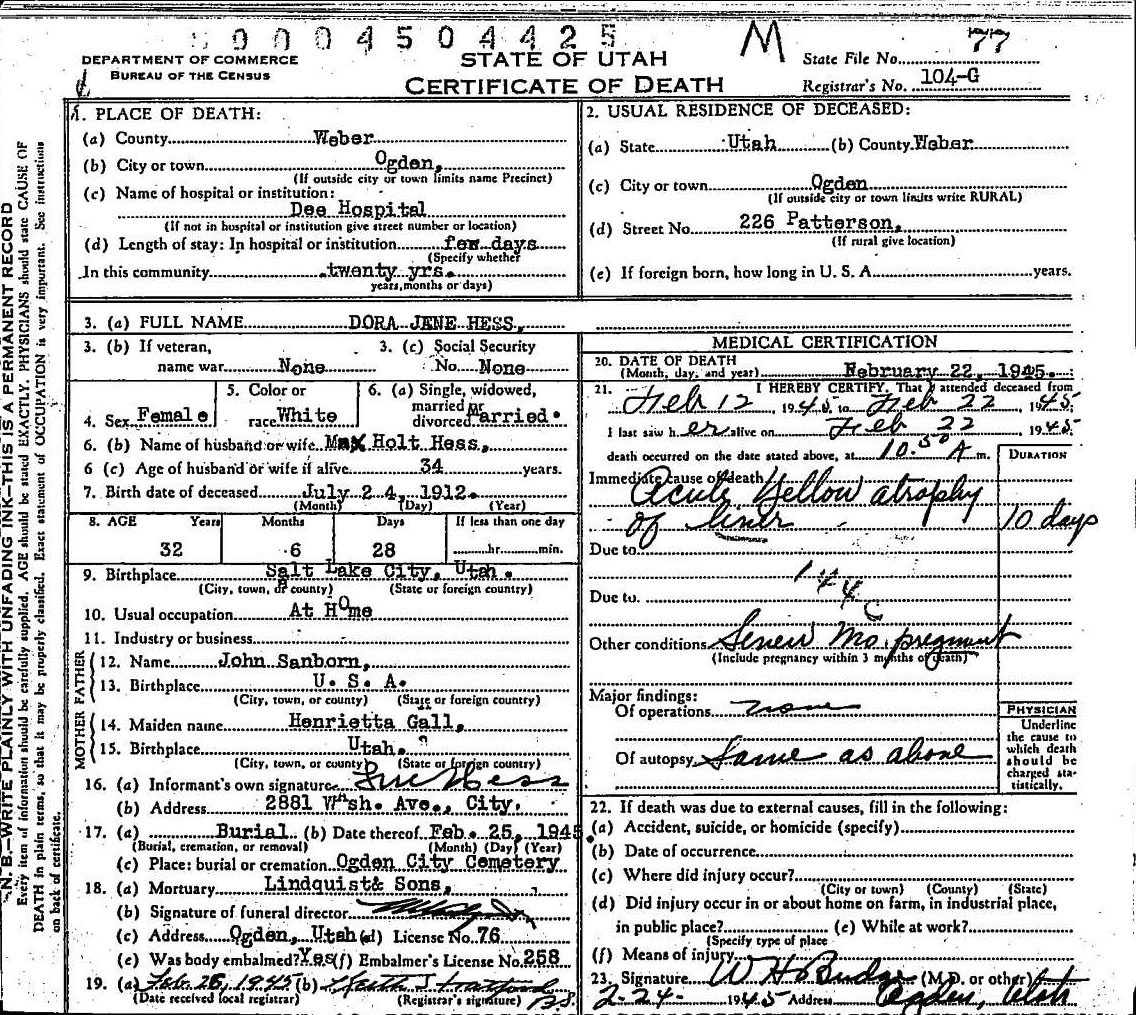 9 0 0 0 4 5 0 4 4 2 5
M
77
DEPARTMENT OF COMMERCE
BUREAU OF THE CENSUS
STATE OF UTAH
CERTIFICATE OF DEATH
State File No.
Registrar's No. 104-G
1. PLACE OF DEATH:
(a) County Weber
(b) City or town Ogden,
(If outside city or town limits name Precinct)
(c) Name of hospital or institution:
Dee Hospital
(If not in hospital or institution give street number or location)
(d) Length of stay: In hospital or institution few days
(Specify whether
In this community twenty yrs.
years, months or days)
2. USUAL RESIDENCE OF DECEASED:
(a) State Utah (b) County Weber
(c) City or town Ogden
(If outside city or town limits write RURAL)
(d) Street No. 226 Patterson,
(If rural give location)
(e) If foreign born, how long in U. S. A. years.
3. (a) FULL NAME DORA JENE HESS,
3. (b) If veteran, 3. (c) Social Security
name war None No. None
5. Color or 6. (a) Single, widowed,
4. Sex Female race White married or divorced Married.
6. (b) Name of husband or wife Max Holt Hess,
6 (c) Age of husband or wife if alive 34 years.
7. Birth date of deceased July 24, 1912.
(Month) (Day) (Year)
8. AGE Years Months Days If less than one day
32 6 28 hr. min.
9. Birthplace Salt Lake City, Utah.
(City, town, or county) (State or foreign country)
10. Usual occupation At Home
11. Industry or business
FATHER
12. Name John Sanborn,
13. Birthplace U. S. A.
(City, town, or county) (State or foreign country)
MOTHER
14. Maiden name Henrietta Gall,
15. Birthplace Utah. ?
(City, town, or county) (State or foreign country)
16. (a) Informant's own signature Hess
(b) Address 2881 Wash. Ave., City.
17. (a) Burial (b) Date thereof Feb. 25, 1945.
(Burial, cremation, or removal) (Month) (Day) (Year)
(c) Place: burial or cremation Ogden City Cemetery
18. (a) Mortuary Lindquist & Sons,
(b) Signature of funeral director
(c) Address Ogden, Utah (d) License No. 76
(e) Was body embalmed? Yes (f) Embalmer's License No. 258
19. (a) Feb. 26, 1945 (b) Keith J Stratford
(Date received local registrar) (Registrar's signature)
MEDICAL CERTIFICATION
20. DATE OF DEATH
(Month, day, and year) February 22, 1945.
21. I HEREBY CERTIFY, That I attended deceased from
Feb 12, 1945 to Feb 22, 1945
I last saw her alive on Feb 22, 1945
death occurred on the date stated above, at 10.50 A m.
DURATION
Immediate cause of death
Acute Yellow atrophy
of liver 10 days
Due to
144 C
Due to.
Other conditions Seven Mo. pregnant
(Include pregnancy within 3 months of death)
Major findings:
Of operations none
Of autopsy Same as above
PHYSICIAN
Underline
the cause to
which death
should be
charged sta-
tistically.
22. If death was due to external causes, fill in the following:
(a) Accident, suicide, or homicide (specify)
(b) Date of occurrence
(c) Where did injury occur?
(City or town) (County) (State)
(d) Did injury occur in or about home on farm, in industrial place,
in public place? (e) While at work?
(Specify type of place
(f) Means of injury
23. Signature W H Budge (M.D. or other)
2-24- 1945 Address Ogden, Utah
N. B.—WRITE PLAINLY WITH UNFADING INK—THIS IS A PERMANENT RECORD
Every item of information should be carefully supplied. AGE should be stated EXACTLY. PHYSICIANS should state CAUSE OF
DEATH in plain terms, so that it may be properly classified. Exact statement of OCCUPATION is very important. See instructions
on back of certificate.